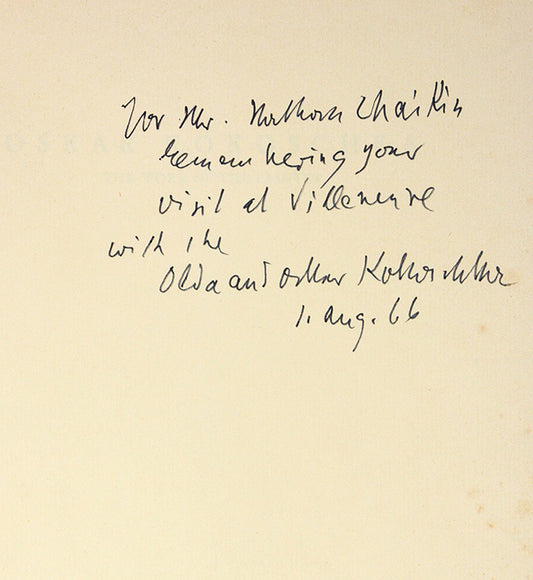 for Mr. Nathan Chaikin
remembering your
visit at Villeneuve
with the
Olda and Oskar Kokoschka
1. Aug. 66